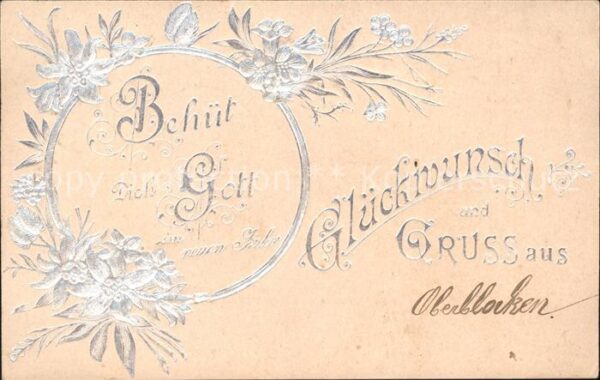 Behüt
Dich Gott
im
neuen Jahre
Glückwunsch
und
GRUSS aus
Oberblocken.